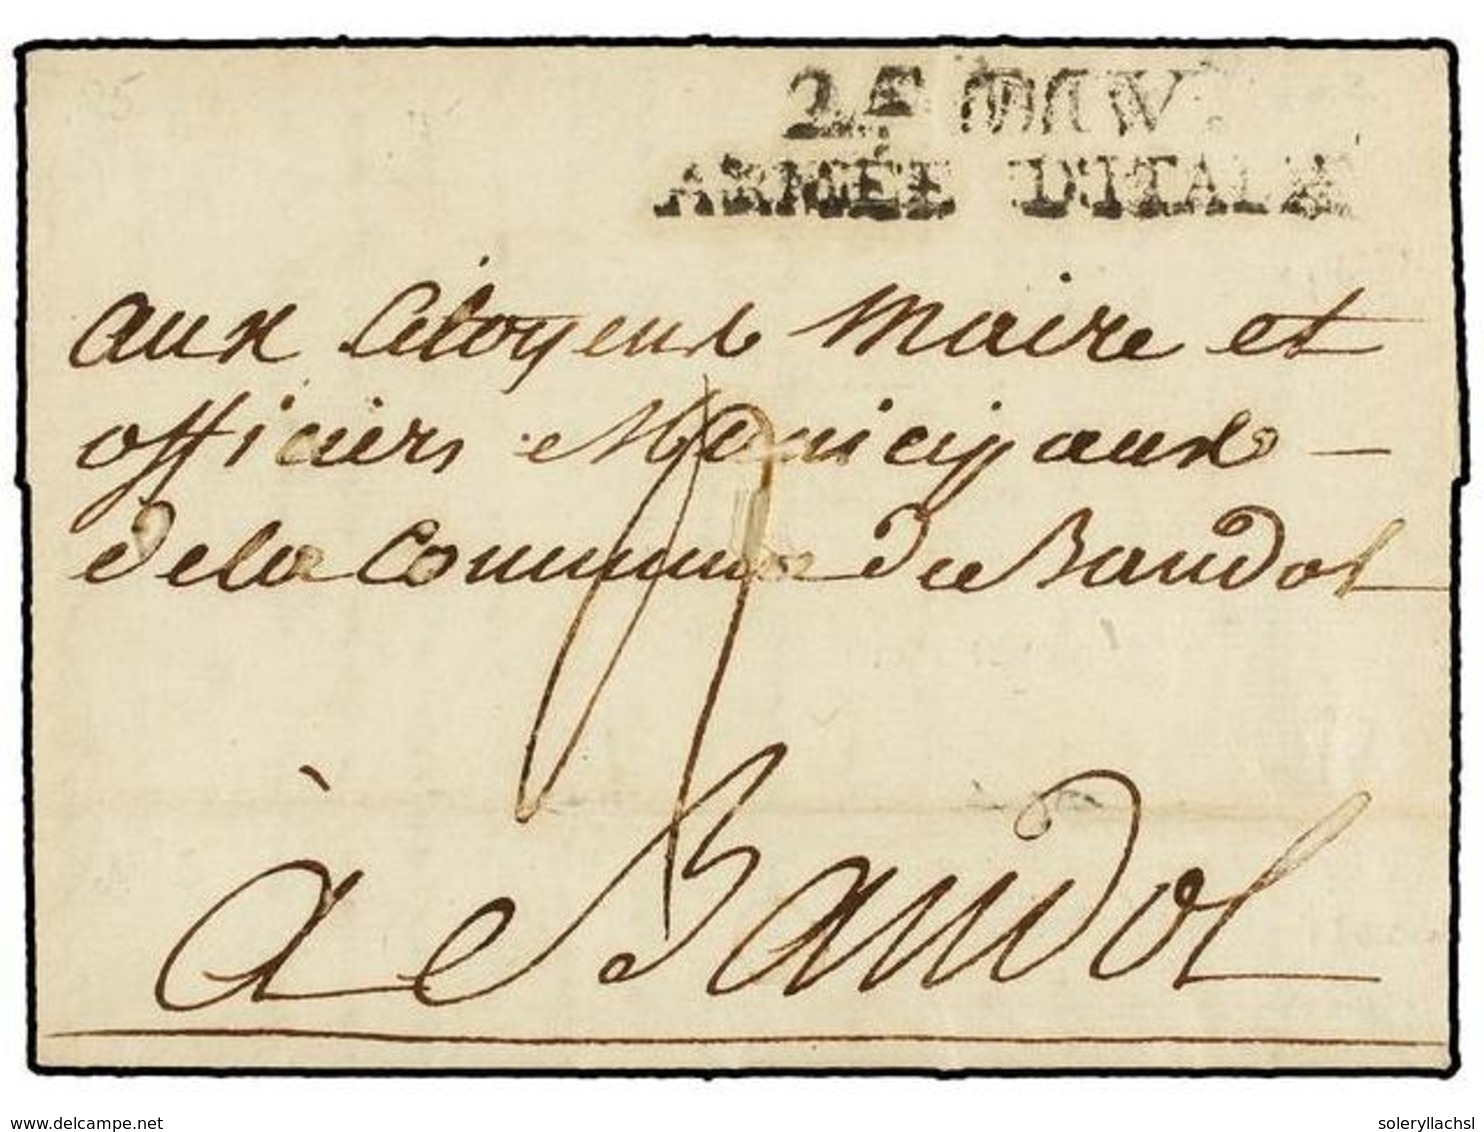 ARMÉE D'ITALIE
aux Citoyens Maire et
officiers Municipaux –
de la Commune du Bandol
à Bandol
delcampe.net
soleryllachsl